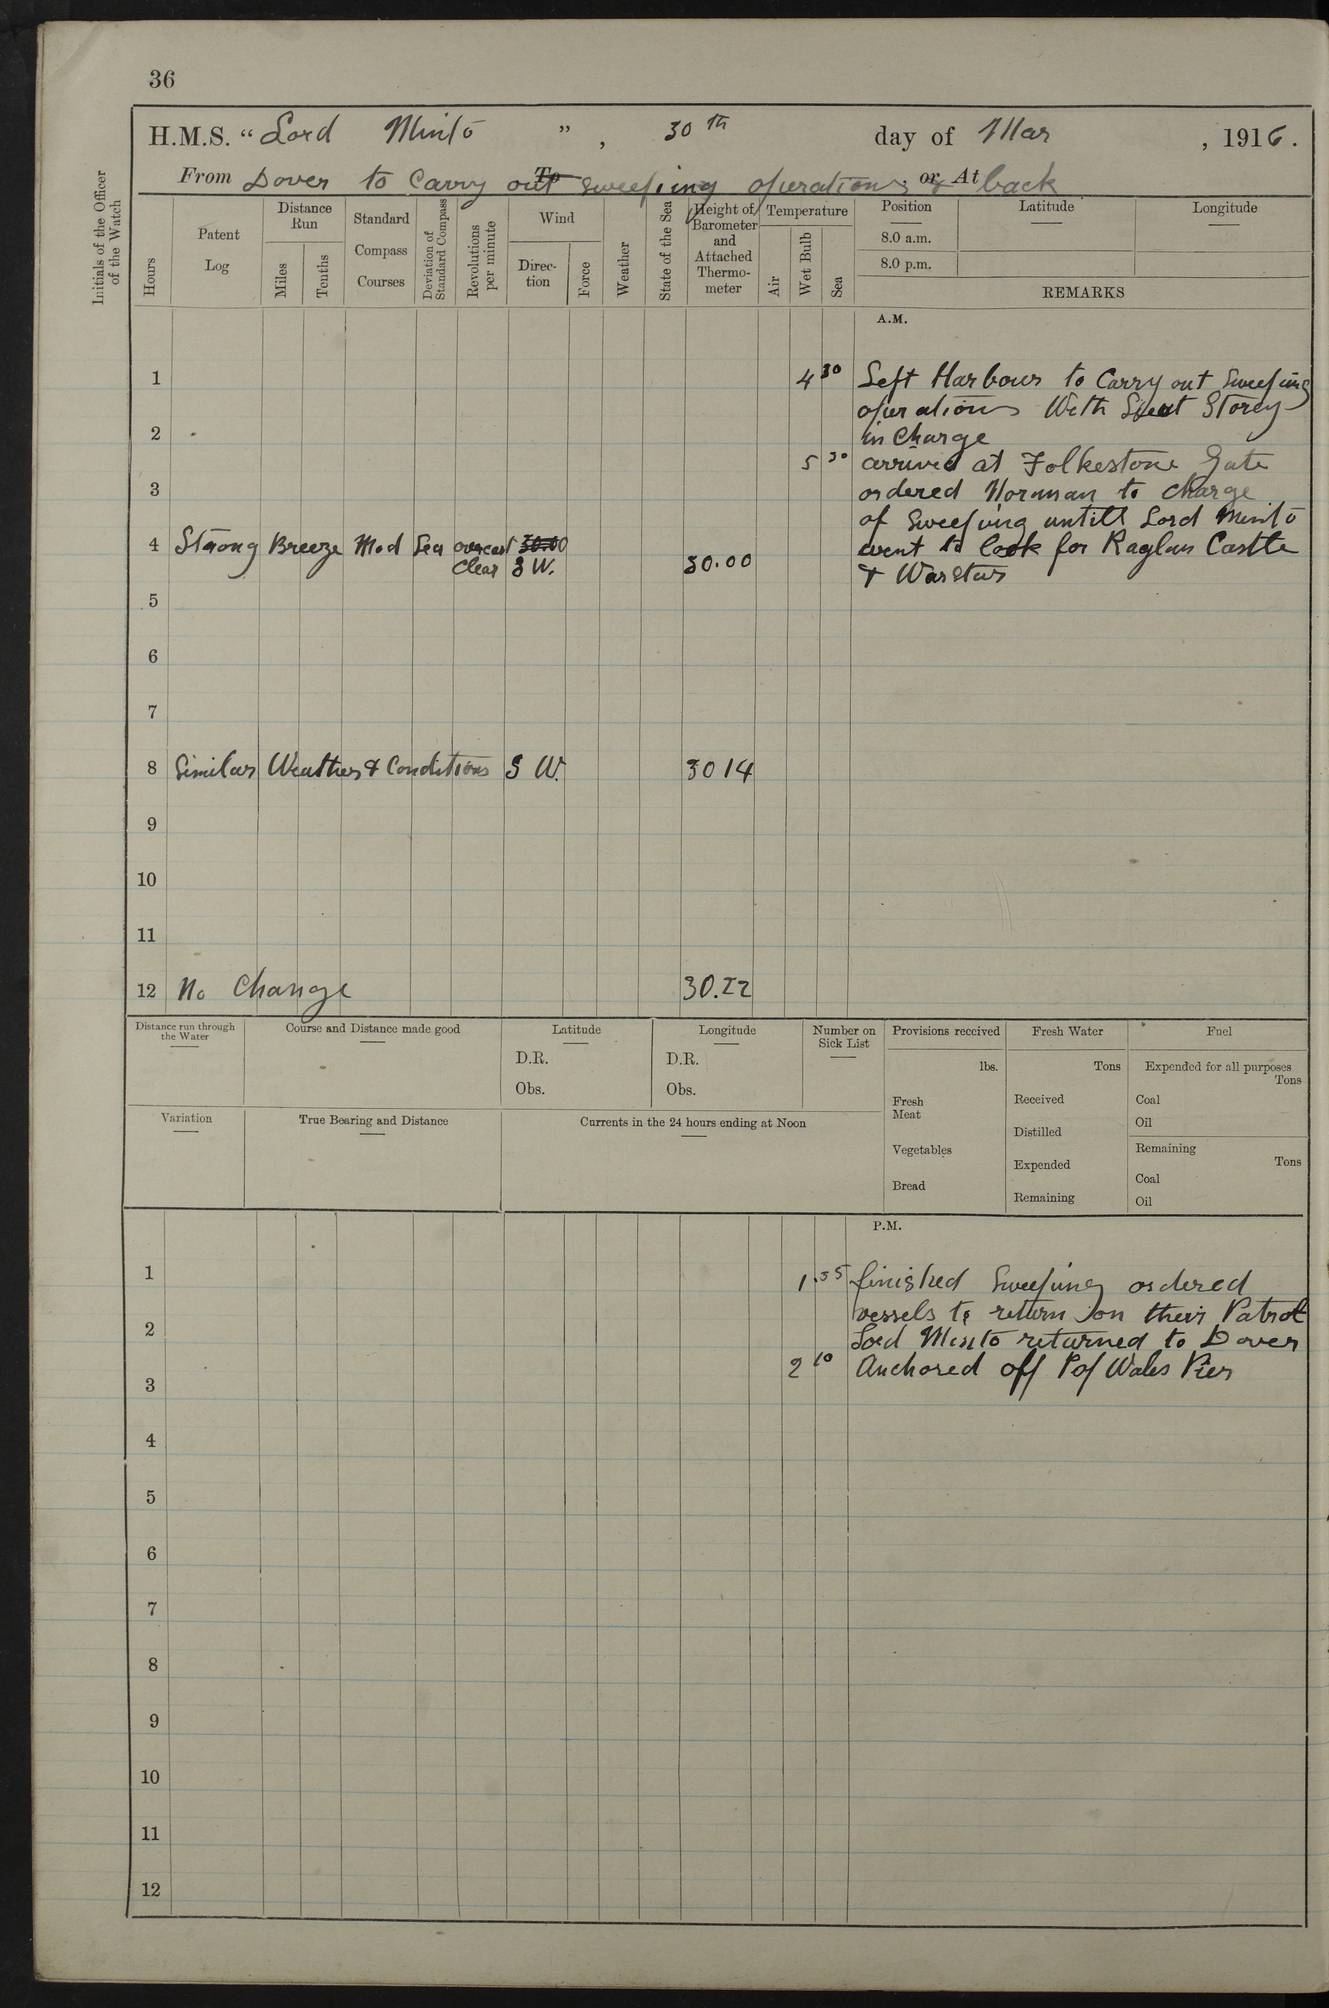 36
H.M.S. “ Lord Minto ” , 30th day of Mar , 1916 .
From Dover to Carry out To sweeping operations or At & back
Initials of the Officer of the Watch
Hours
Patent Log
Distance Run
Miles
Tenths
Standard Compass Courses
Deviation of Standard Compass
Revolutions per minute
Wind
Direc-tion
Force
Weather
State of the Sea
Height of Barometer and Attached Thermo-meter
Temperature
Air
Wet Bulb
Sea
Position
Latitude
Longitude
8.0 a.m.
8.0 p.m.
REMARKS
A.M.
1 4 30 Left Harbour to Carry out Sweeping
operations With Lieut Storey
2 in Charge
5 30 arrived at Folkestone Gate
3 ordered Norman to charge
of Sweeping untill Lord Minto
4 Strong Breeze Mod Sea overcast 30.00 went to look for Raglan Castle
Clear S W. 30.00 & Warstar
5
6
7
8 Similar Weather & Conditions S W. 30 14
9
10
11
12 No Change 30.22
Distance run through the Water
Course and Distance made good
Latitude
D.R.
Obs.
Longitude
D.R.
Obs.
Number on Sick List
Provisions received
lbs.
Fresh Meat
Vegetables
Bread
Fresh Water
Tons
Received
Distilled
Expended
Remaining
Fuel
Expended for all purposes
Tons
Coal
Oil
Remaining
Tons
Coal
Oil
Variation
True Bearing and Distance
Currents in the 24 hours ending at Noon
P.M.
1 1.35 finished Sweeping ordered
vessels to return on their Patrol
2 Lord Minto returned to Dover
2 10 Anchored off P of Wales Pier
3
4
5
6
7
8
9
10
11
12